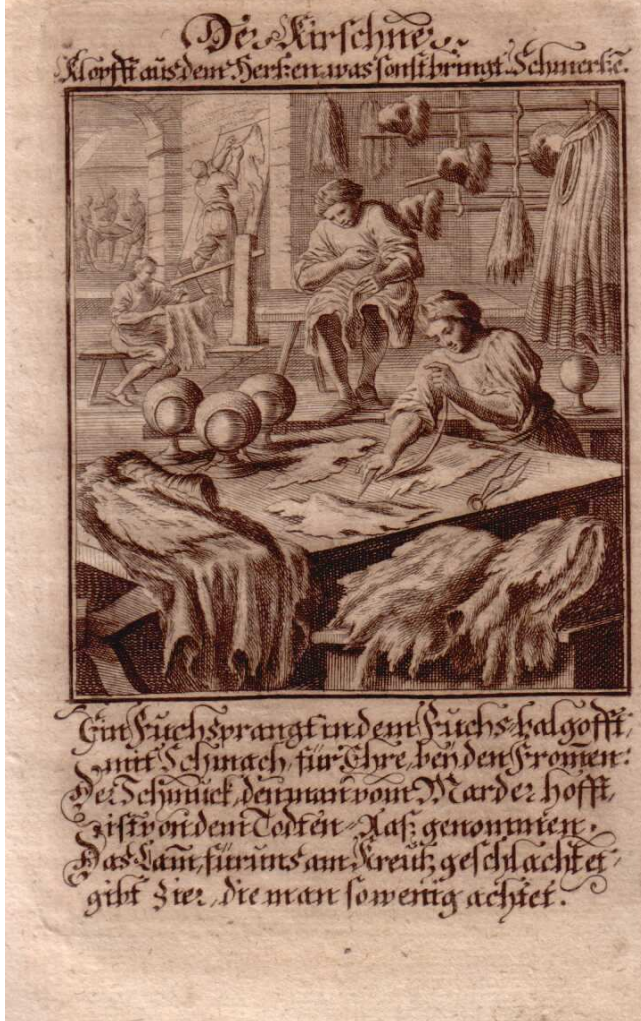 Der Kürschner.
Klopfft aus dem Hertzen, was sonst bringt Schmertze.
Ein Fuchs prangt in dem Fuchs-balg offt,
mit Schmach, für Ehre, beÿ den From̃en:
Der Schmuck, den man vom Marder hofft,
ist von dem Todten-Aaß genommen.
Das Lam̃, für uns am Kreutz geschlachtet,
gibt Zier, die man so wenig achtet.